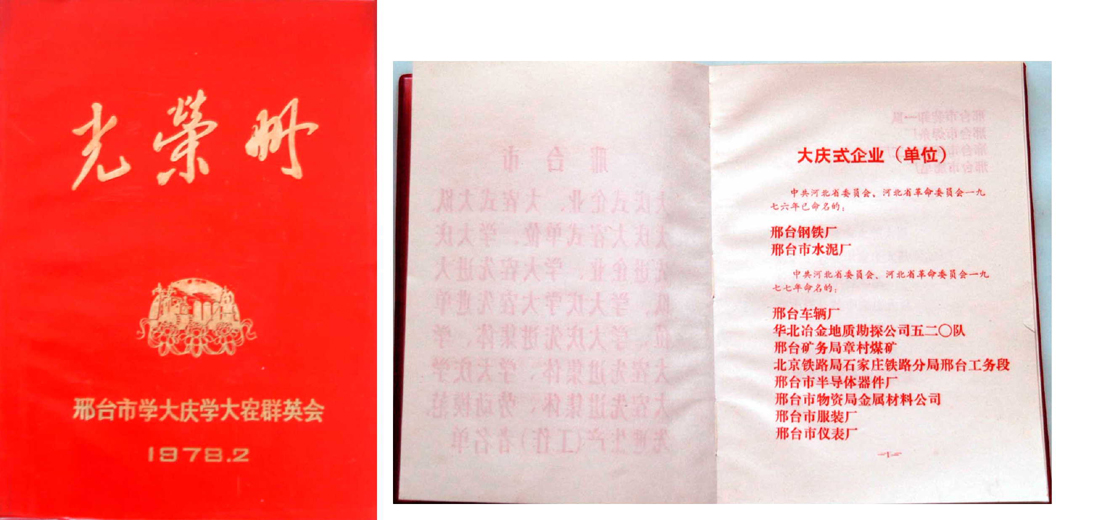 光榮册
邢台市学大庆学大寨群英会
1978.2
大庆式企业（单位）
中共河北省委员会、河北省革命委员会一九
七六年已命名的：
邢台钢铁厂
邢台市水泥厂
中共河北省委员会、河北省革命委员会一九
七七年命名的：
邢台车辆厂
华北冶金地质勘探公司五二〇队
邢台矿务局章村煤矿
北京铁路局石家庄铁路分局邢台工务段
邢台市半导体器件厂
邢台市物资局金属材料公司
邢台市服装厂
邢台市仪表厂
—1—